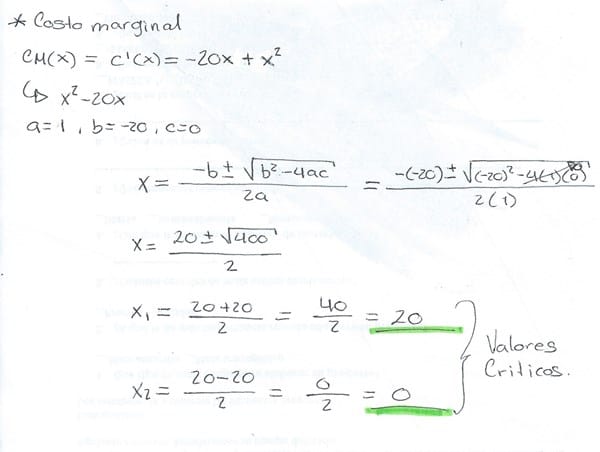 * Costo marginal
CM(x) = C'(x) = -20x + x²
↳ x² - 20x
a = 1, b = -20, c = 0
x = -b ± √(b² - 4ac) / 2a = -(-20) ± √((-20)² - 4(1)(0)) / 2(1)
x = 20 ± √400 / 2
x₁ = 20 + 20 / 2 = 40 / 2 = 20
x₂ = 20 - 20 / 2 = 0 / 2 = 0
Valores
Criticos.